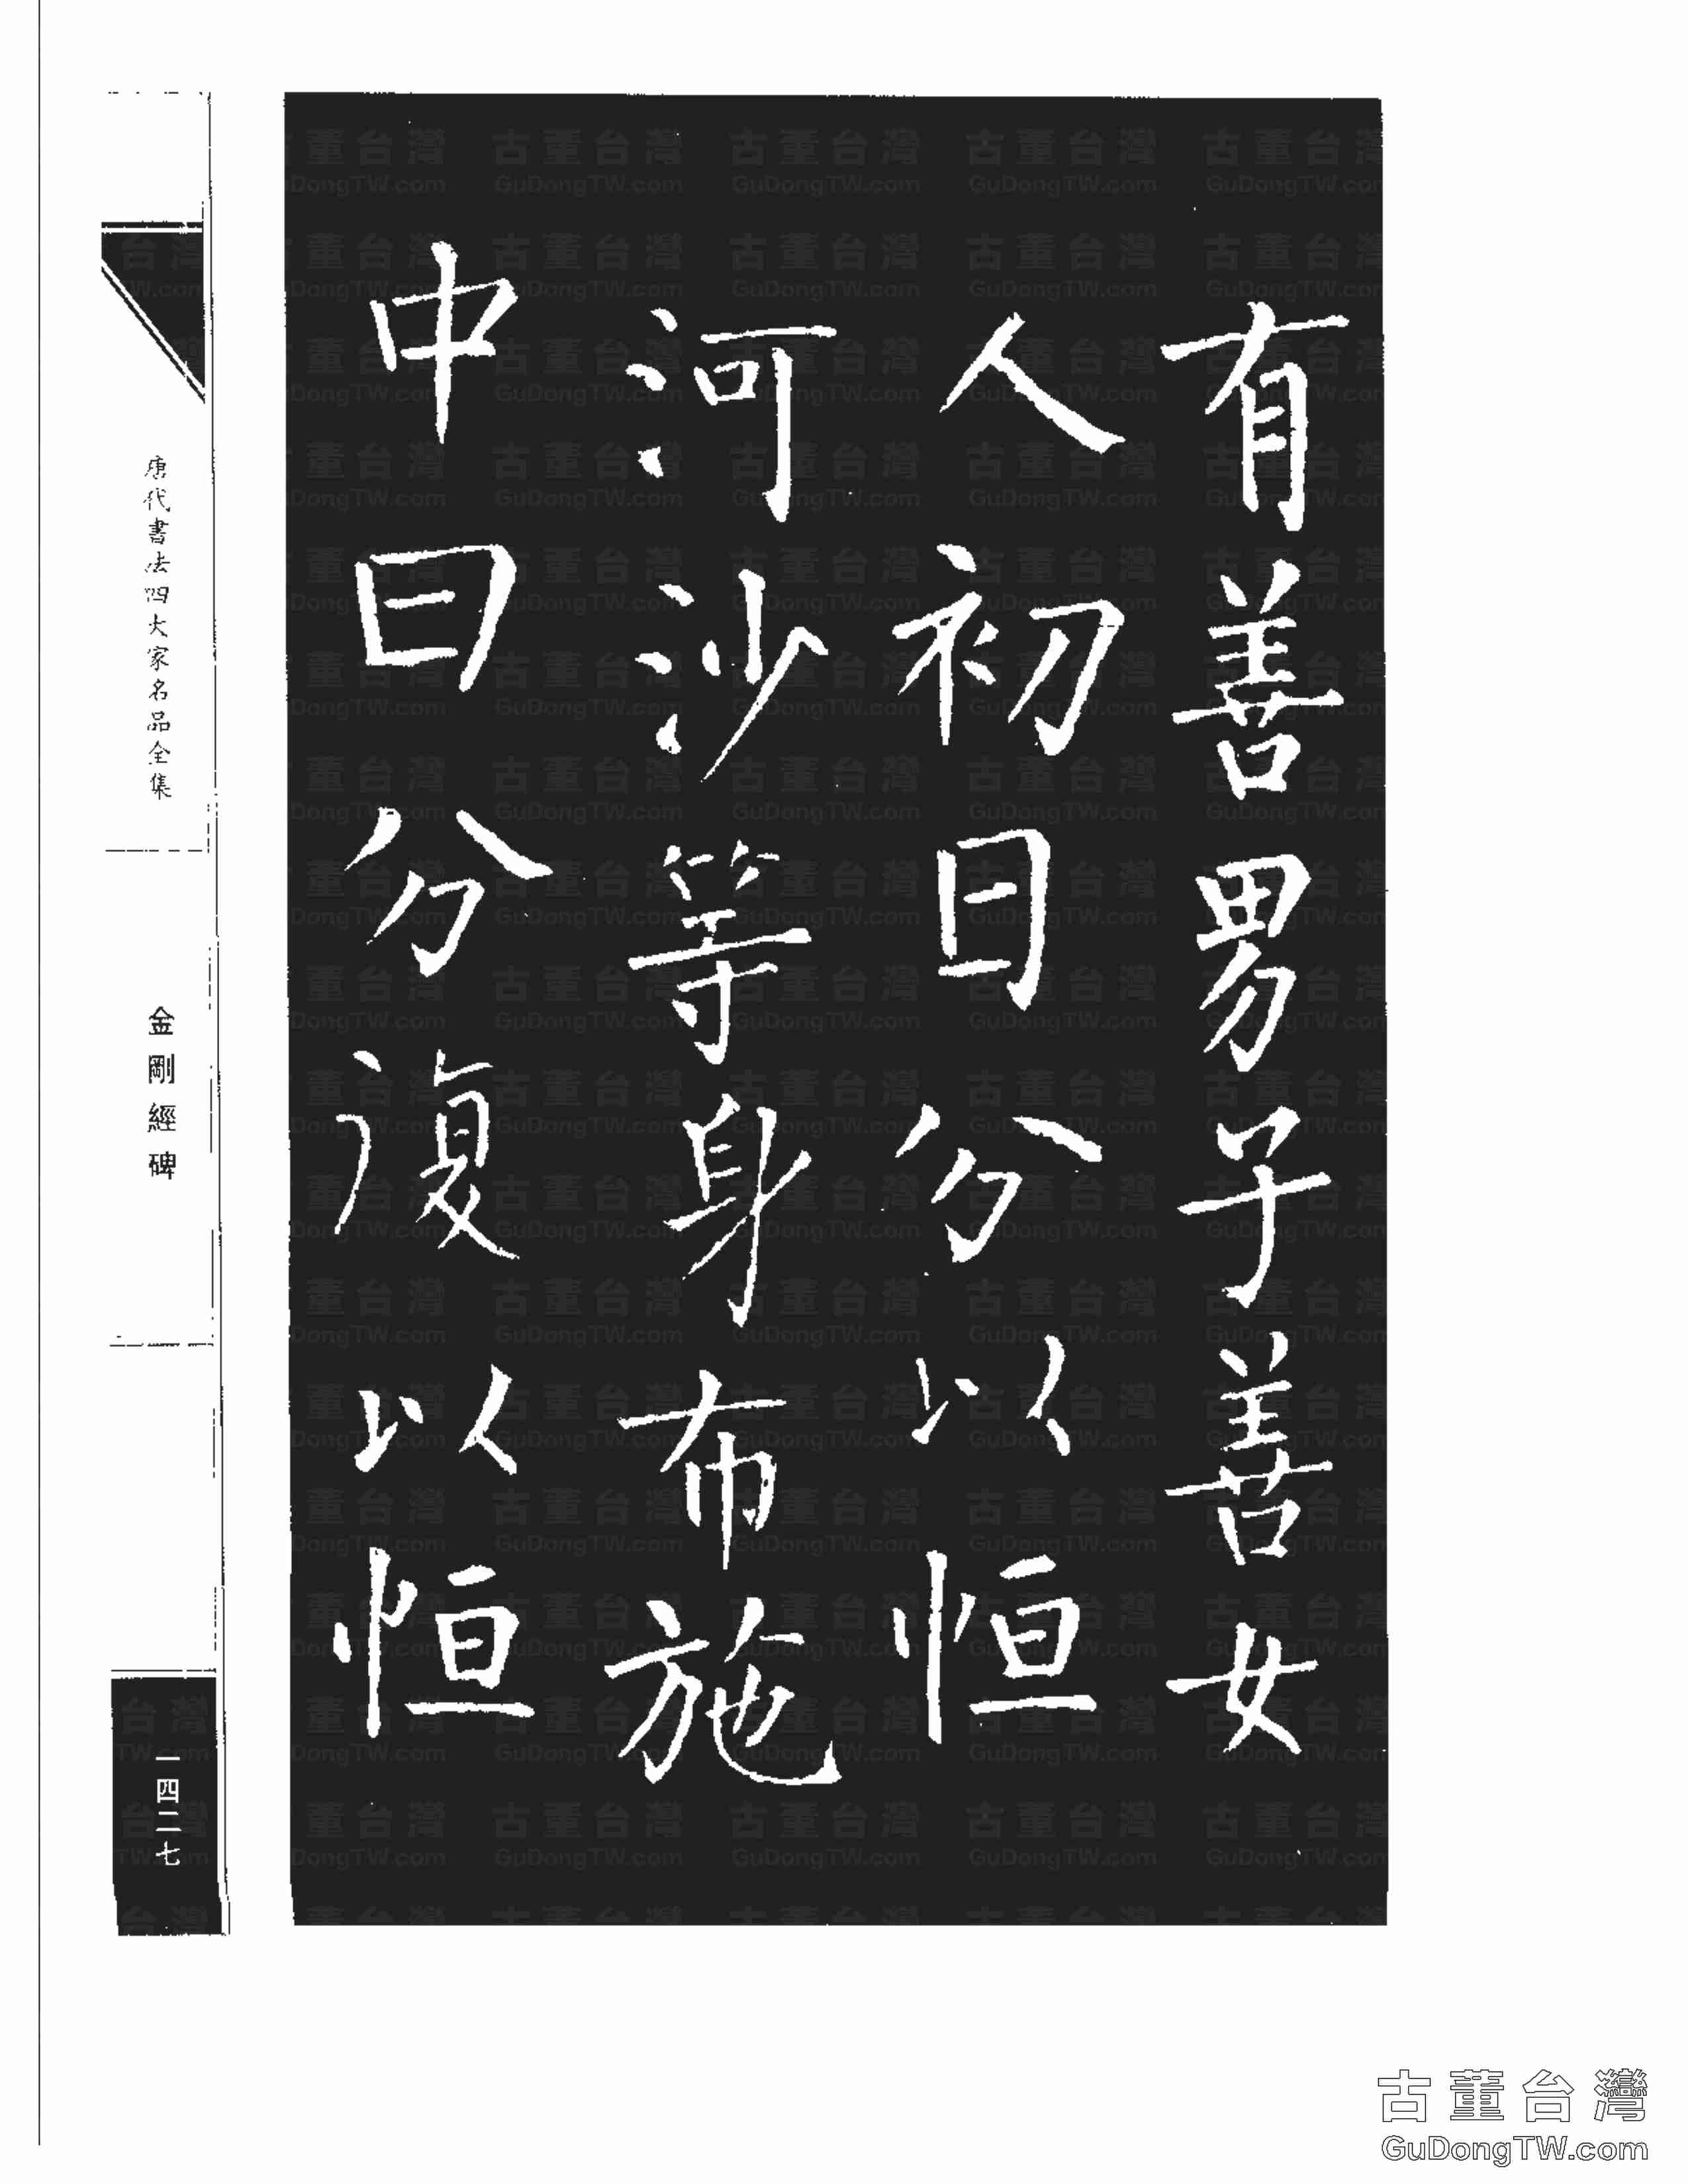 有善男子善女
人初日分以恒
河沙等身布施
中日分復以恒
唐代書法四大家名品全集
金剛經碑
一四二七
古董台灣
GuDongTW.com